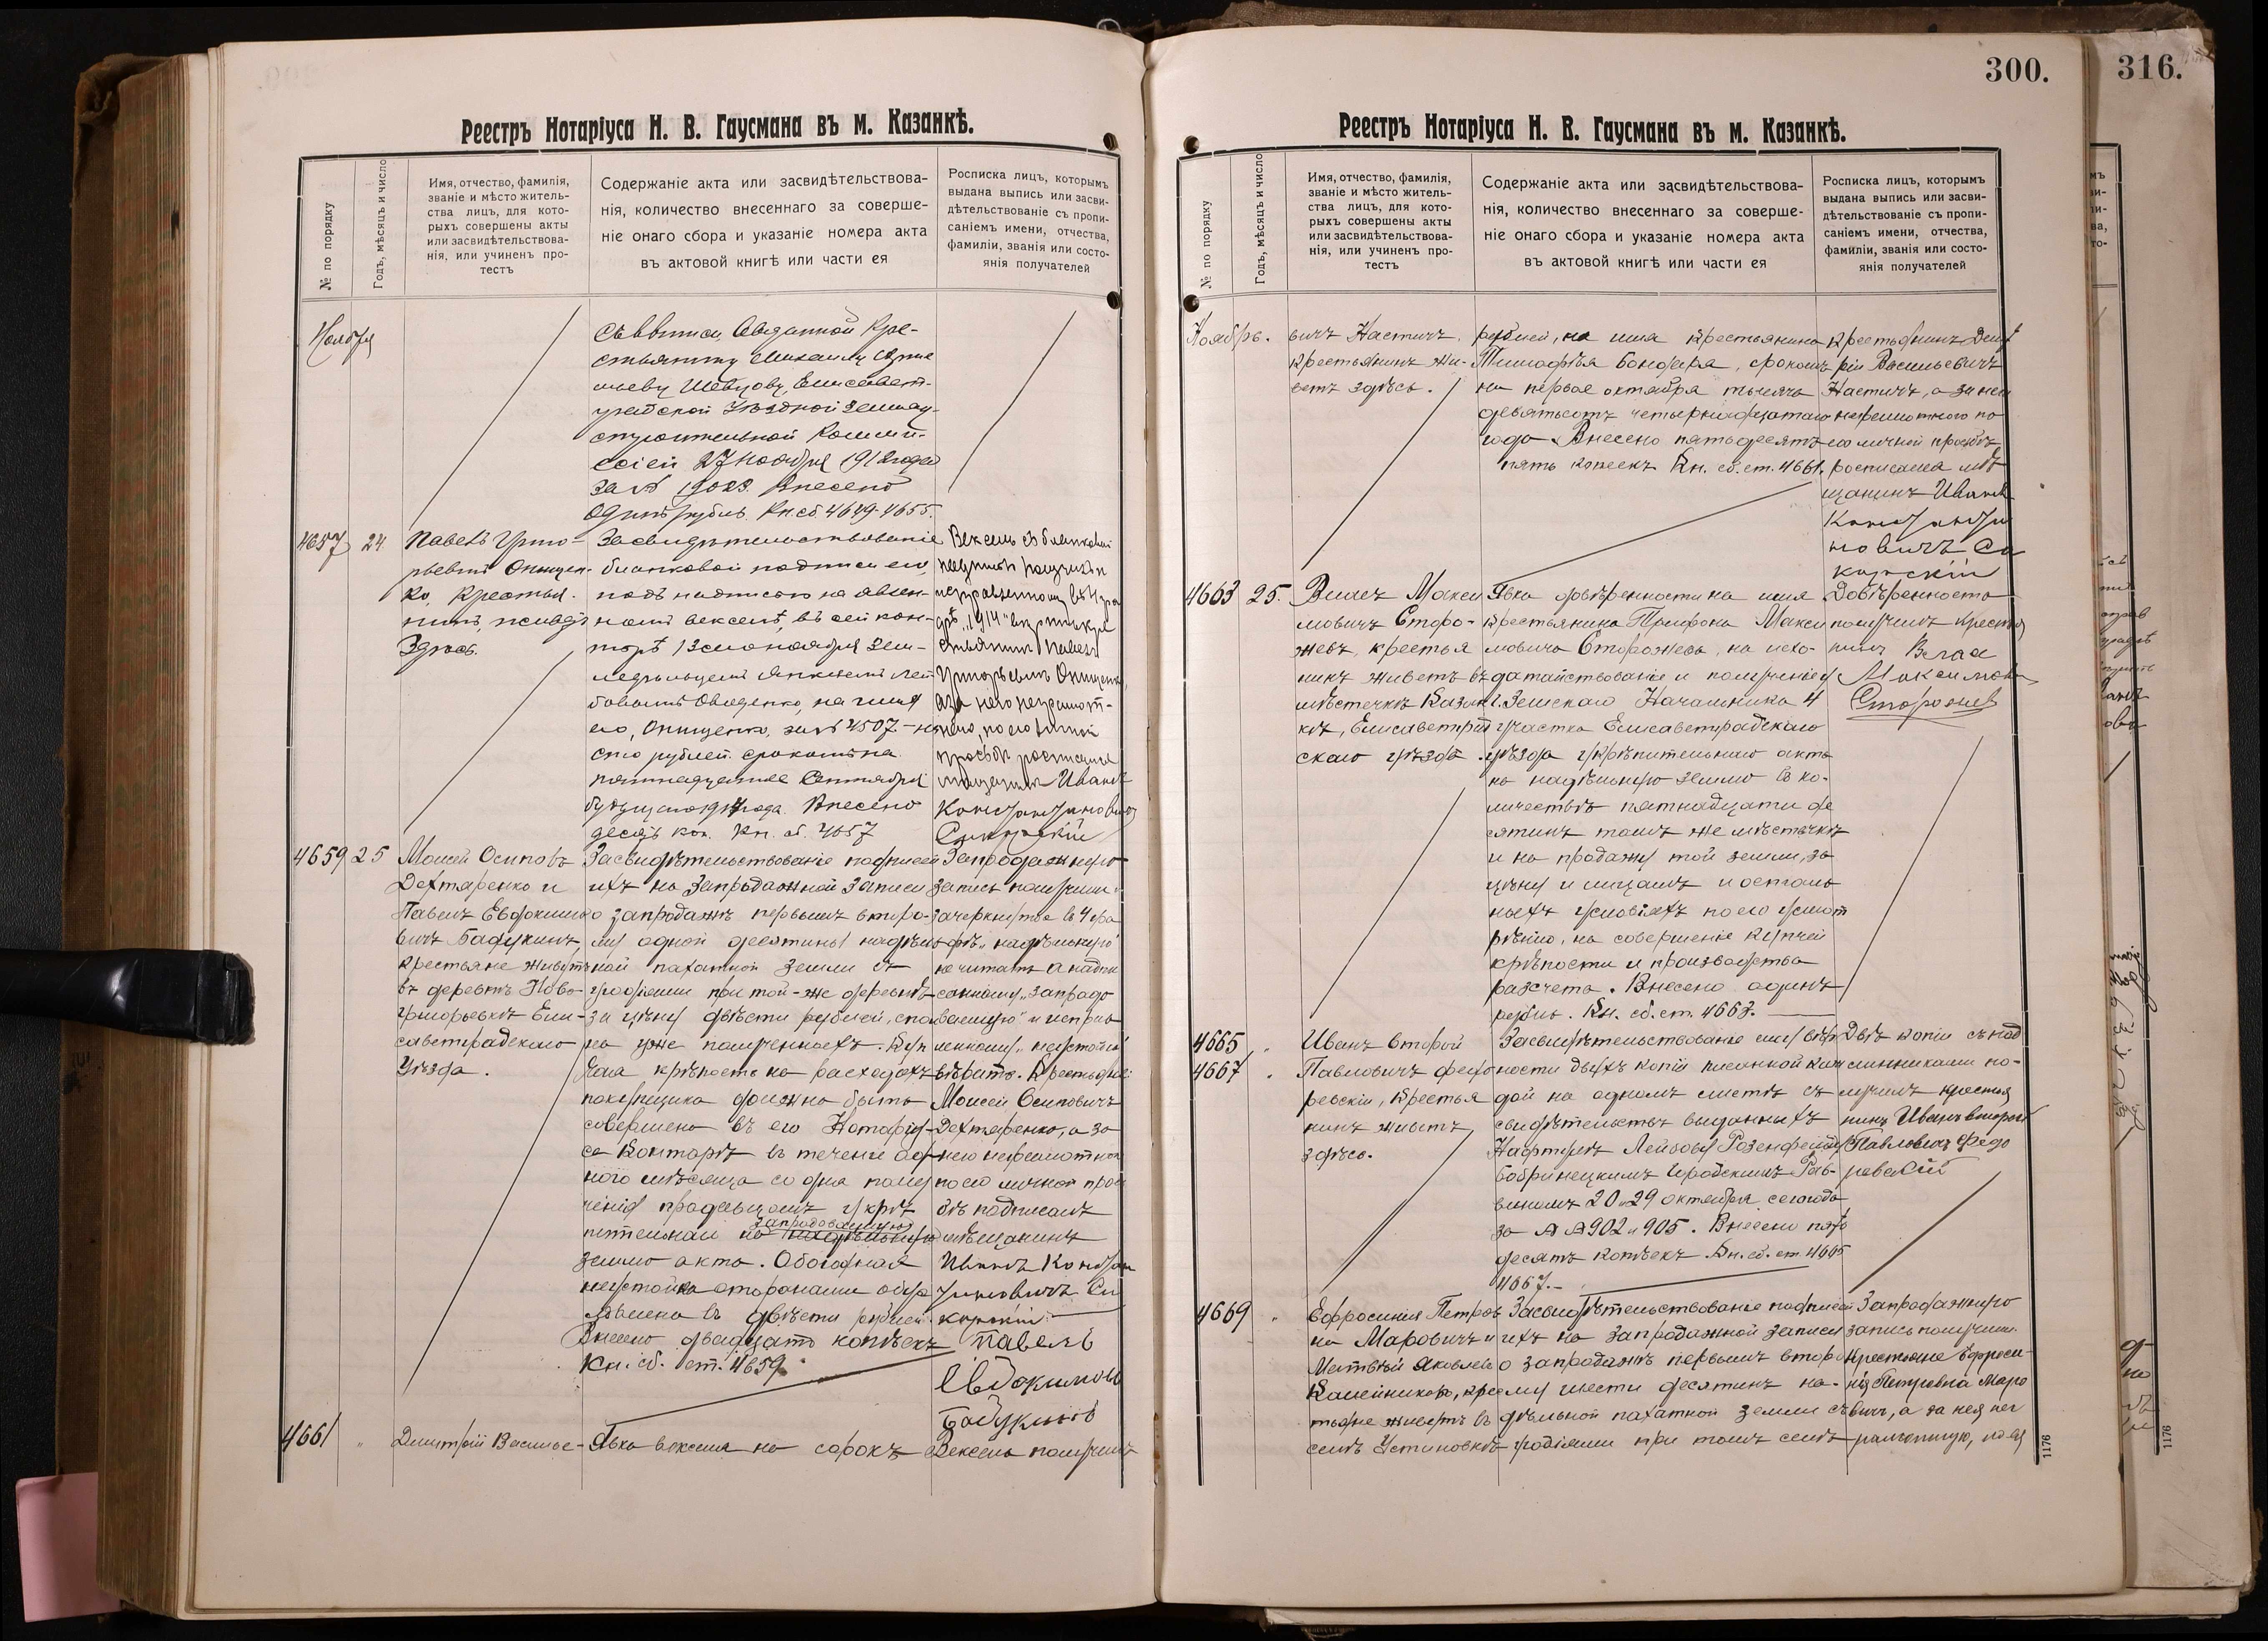 Реестръ Нотаріуса Н. В. Гаусмана въ м. Казанкѣ.
№ по порядку
Годъ, мѣсяцъ и число
Имя, отчество, фамилія,
званіе и мѣсто житель-
ства лицъ, для кото-
рыхъ совершены акты
или засвидѣтельствова-
нія, или учиненъ про-
тестъ
Содержаніе акта или засвидѣтельствова-
нія, количество внесеннаго за соверше-
ніе онаго сбора и указаніе номера акта
въ актовой книгѣ или части ея
Росписка лицъ, которымъ
выдана выпись или засви-
дѣтельствованіе съ пропи-
саніемъ имени, отчества,
фамиліи, званія или состо-
янія получателей
Ноября
стьянину
Шевцову Елисавет-
градской Уѣздной Земле-
строительной Коммис-
сіей 27 Ноября 1912 года
за № 19023. Внесено
Одинъ рубль. Кн. сб. 4649-4655.
4657
24
Павелъ Григо-
рьевичъ Онищен-
ко, крестья-
нинъ, живетъ
Здѣсь.
Засвидѣтельствованіе
бланковой надписи его,
подъ надписью на явлен-
номъ векселѣ, въ сей кон-
торѣ 13 сего ноября Зем-
на имя
его, Онищенко, за № 4507 - на
сто рублей срокомъ на
пятнадцатое Сентября
года. Внесено
десять коп. Кн. сб. 4657
Вексель съ бланковой
надписью получилъ
"1914"
крестьянинъ Павелъ
Григорьевичъ Онищенко,
а за него неграмот-
наго, по его личной
просьбѣ росписался
мѣщанинъ Иванъ
Константиновичъ
Сикорскій
4659
25
Моисей Осиповъ
Дехтяренко и
Павелъ Евдокимо
вичъ Бадукинъ,
крестьяне живутъ
въ деревнѣ Ново-
григорьевкѣ Ели-
саветградскаго
Уѣзда.
Засвидѣтельствованіе подписей
ихъ на Запродажной Записи
о запродажѣ первымъ второ-
му одной десятины надѣль-
ной пахатной земли съ
угодіями при той-же деревнѣ
за цѣну двѣсти рублей, спол
на уже полученныхъ. Куп
чая крѣпость на расходахъ
покупщика должна быть
совершена въ его Нотаріу-
са Конторѣ въ теченіе од-
ного мѣсяца со дня полу
ченія продавцомъ укрѣ
запродаваемую
пительнаго на надѣльную
землю акта. Обоюдная
неустойка сторонами опре
дѣлена въ двѣсти рублей.
Внесено двадцать копѣекъ
Кн. сб. ст. 4659.
Запродажную
запись получили.
зачеркнутое въ 4 гра
фѣ "надѣльную"
не читать а надпи
санному "запродо
ваемую" и исправ
ленному "неустойка"
вѣрить. Крестьяне
Моисей Осиповичъ
Дехтяренко, а за
него неграмотнаго
по его личной прось
бѣ подписался
мѣщанинъ
Иванъ Констан
тиновичъ Си
корскій
Павелъ
Евдокимовъ
Бадукинъ
4661
"
Дмитрій Василье-
Явка векселя на сорокъ
Вексель получилъ
300.
Реестръ Нотаріуса Н. В. Гаусмана въ м. Казанкѣ.
№ по порядку
Годъ, мѣсяцъ и число
Имя, отчество, фамилія,
званіе и мѣсто житель-
ства лицъ, для кото-
рыхъ совершены акты
или засвидѣтельствова-
нія, или учиненъ про-
тестъ
Содержаніе акта или засвидѣтельствова-
нія, количество внесеннаго за соверше-
ніе онаго сбора и указаніе номера акта
въ актовой книгѣ или части ея
Росписка лицъ, которымъ
выдана выпись или засви-
дѣтельствованіе съ пропи-
саніемъ имени, отчества,
фамиліи, званія или состо-
янія получателей
Ноябрь.
вичъ Настичъ,
крестьянинъ жи-
ветъ здѣсь.
рублей, на имя крестьянина
Тимофѣя срокомъ
на первое октября тысяча
девятьсотъ четырнадцатаго
года. Внесено пятьдесятъ
пять копеекъ Кн. сб. ст. 4661.
крестьянинъ Дмит
рій Васильевичъ
Настичъ, а за него
неграмотнаго по
его личной просьбѣ
росписался мѣ
щанинъ Иванъ
Константи
новичъ Си
корскій
4663
25.
Власъ Макси
мовичъ Сторо-
жевъ, крестья
нинъ живетъ въ
мѣстечкѣ Казан
кѣ, Елисаветград
скаго уѣзда.
Явка довѣренности на имя
крестьянина Трифона Макси
мовича Сторожева, на исхо-
датайствованіе и полученіе у
г. Земскаго Начальника 4
участка Елисаветградскаго
уѣзда укрѣпительнаго акта
на надѣльную землю въ ко-
личествѣ пятнадцати де
сятинъ томъ же мѣстечкѣ
и на продажу той земли, за
цѣну и лицамъ и осталь
ныхъ условіяхъ по его усмот
рѣнію, на совершеніе купчей
крѣпости и производства
разсчета. Внесено одинъ
рубль. Кн. сб. ст. 4663.
Довѣренность
получилъ крестья
нинъ Власъ
Максимовъ
Сторожев
4665
4667
Иванъ второй
Павловичъ Федо
ревскій, крестья
нинъ живетъ
здѣсь.
Засвидѣтельствованіе ему вѣр
ности двухъ копій писанной каж
дой на одномъ листѣ съ
свидѣтельствъ выданныхъ
Нафтулу Лейзову Розенфельду
Бобринецкимъ Городскимъ Рав-
виномъ 20 и 29 октября сего года
за №№ 902 и 905. Внесено пять
десятъ копѣекъ Кн. сб. ст. 4665
4667.-
Двѣ копіи съ под
линниками по-
лучилъ крестья
нинъ Иванъ второй
Павловичъ Федо
ревскій
4669
Ефросинія Петров
на Маровичъ и
Матвѣй Яковлевъ
кре
стьяне живутъ въ
селѣ Устиновкѣ
Засвидѣтельствованіе подписей
ихъ на Запродажной Записи
о запродажѣ первымъ второ
му шести десятинъ на-
дѣльной пахатной земли съ
угодіями при томъ селѣ
Запродажную
запись получили
крестьяне Ефроси-
нія Петровна Маро
вичъ, а за нея нег
рамотную, по ея
1176
316.
1176